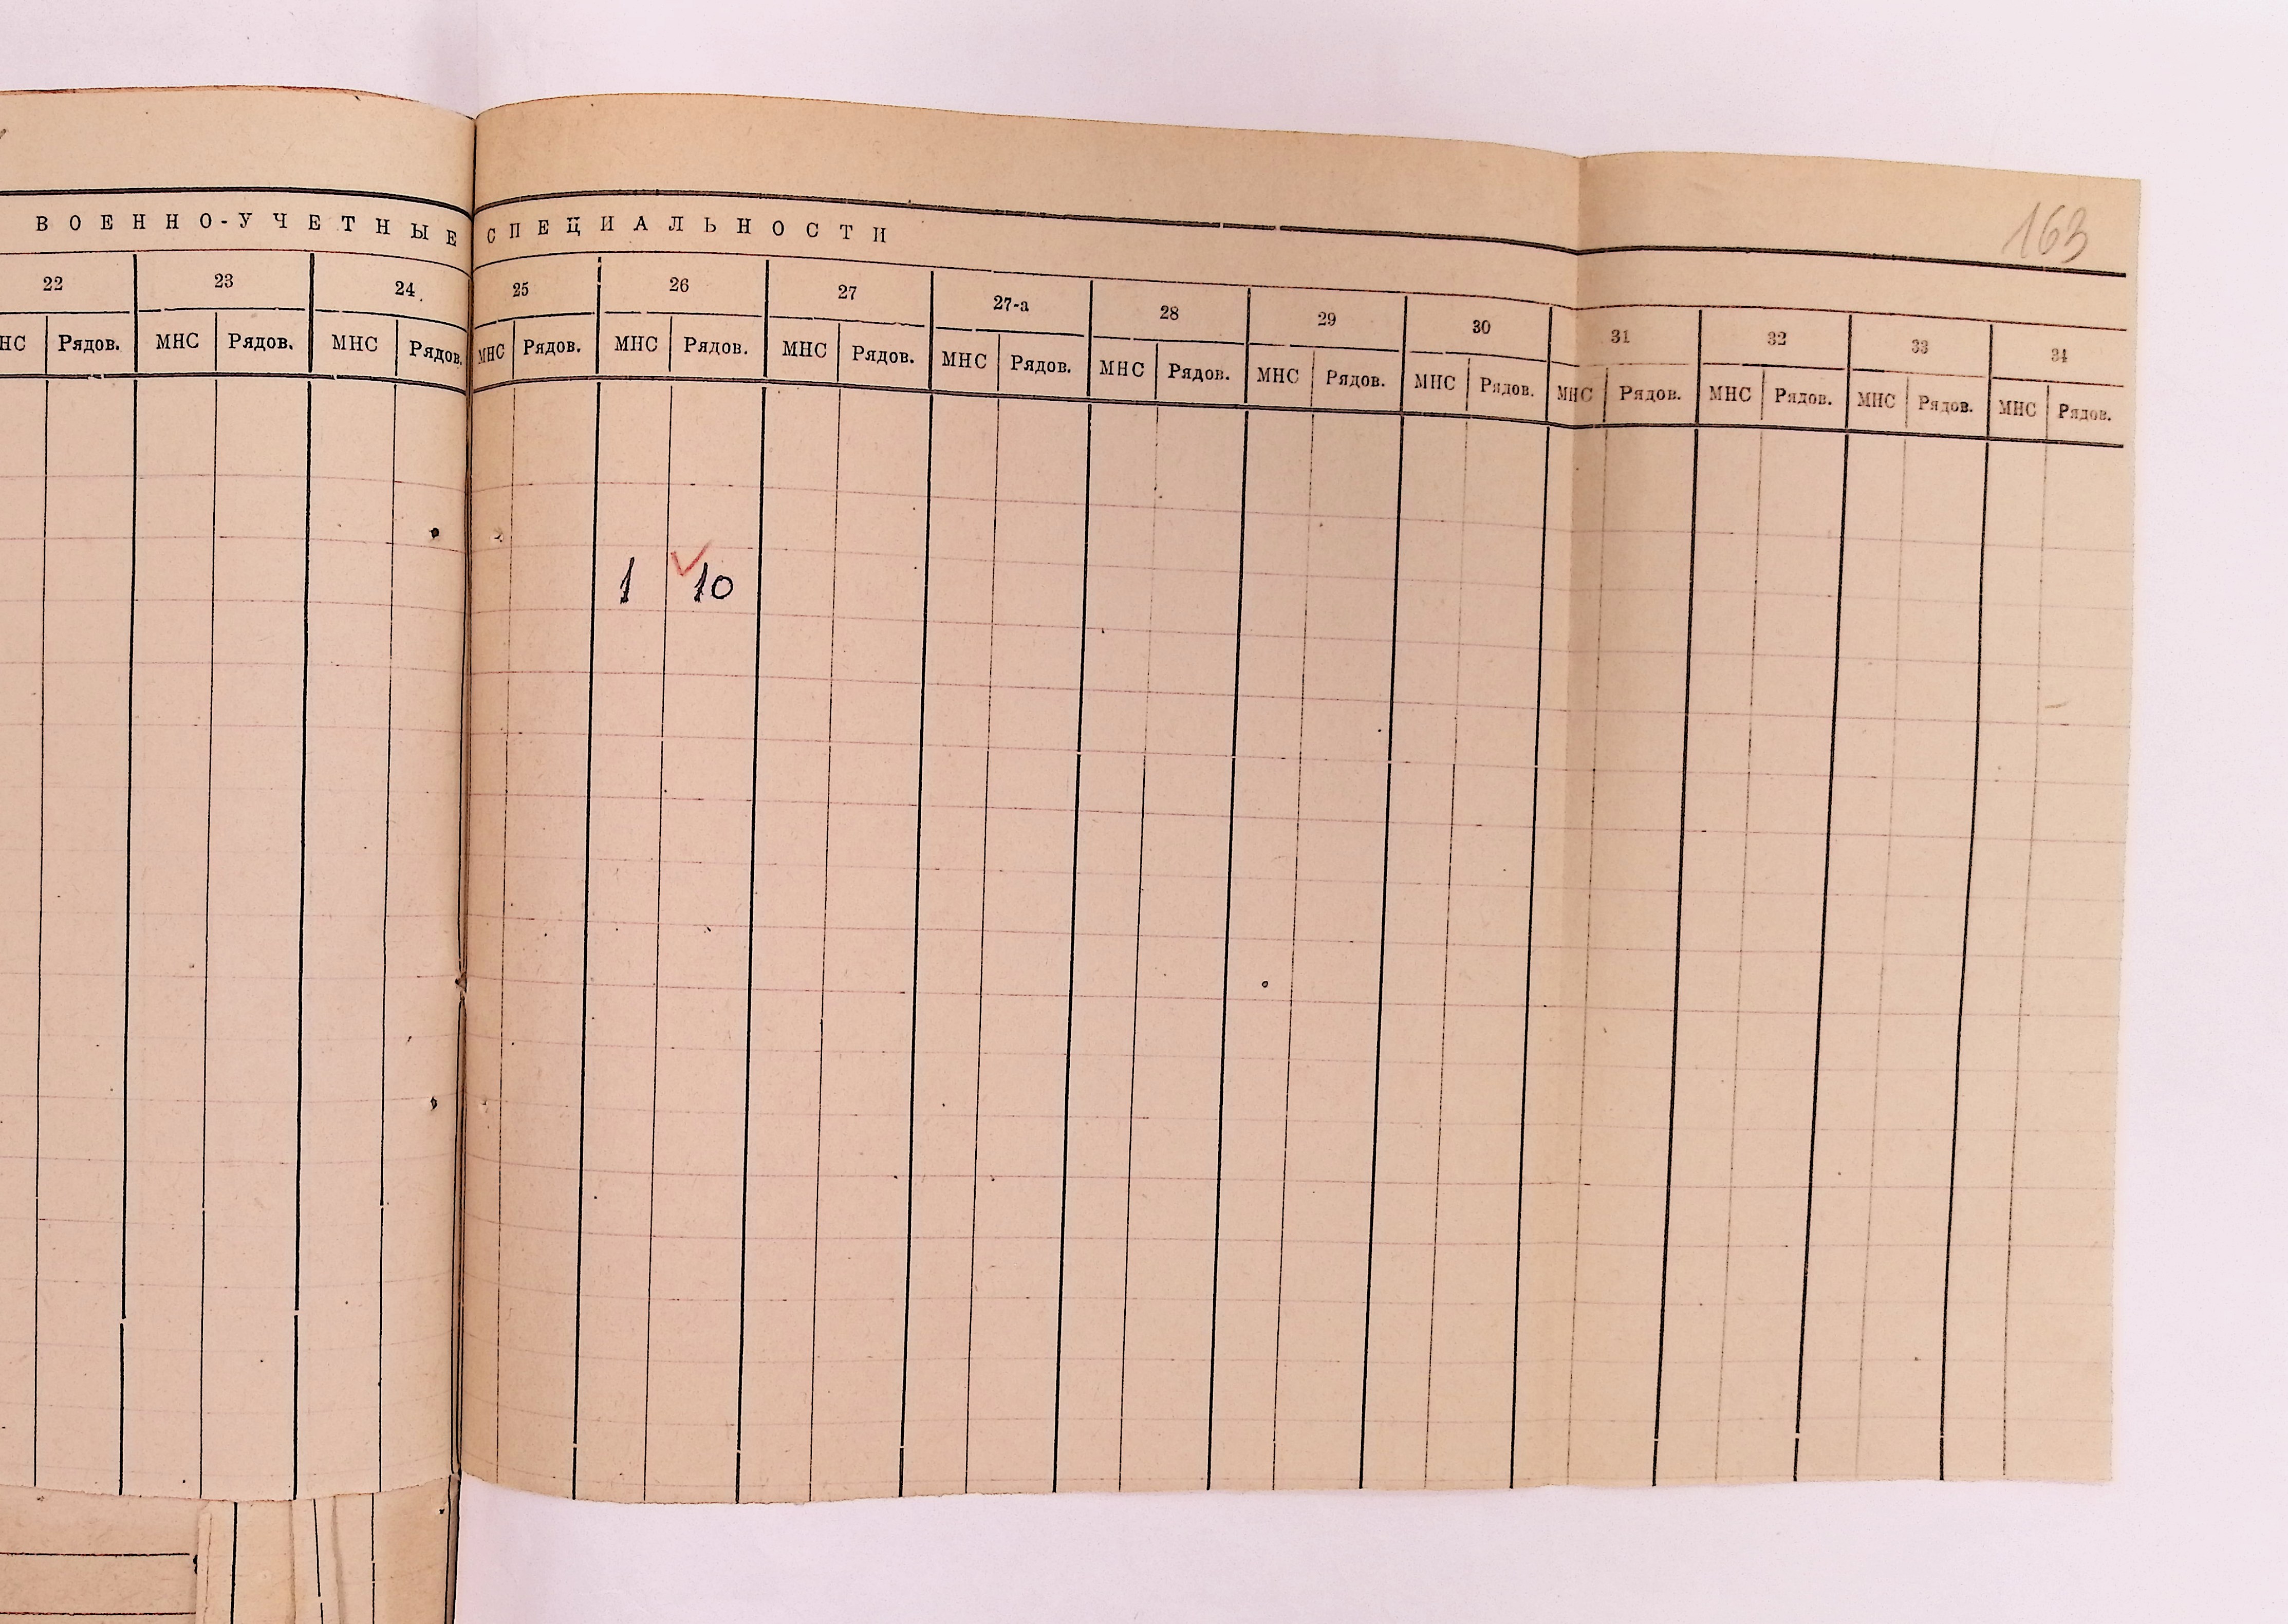 163
ВОЕННО-УЧЕТНЫЕ СПЕЦИАЛЬНОСТИ
22 23 24 25 26 27 27-а 28 29 30 31 32 33 34
НС Рядов. МНС Рядов. МНС Рядов. МНС Рядов. МНС Рядов. МНС Рядов. МНС Рядов. МНС Рядов. МНС Рядов. МНС Рядов. МНС Рядов. МНС Рядов. МНС Рядов. МНС Рядов.
1 10